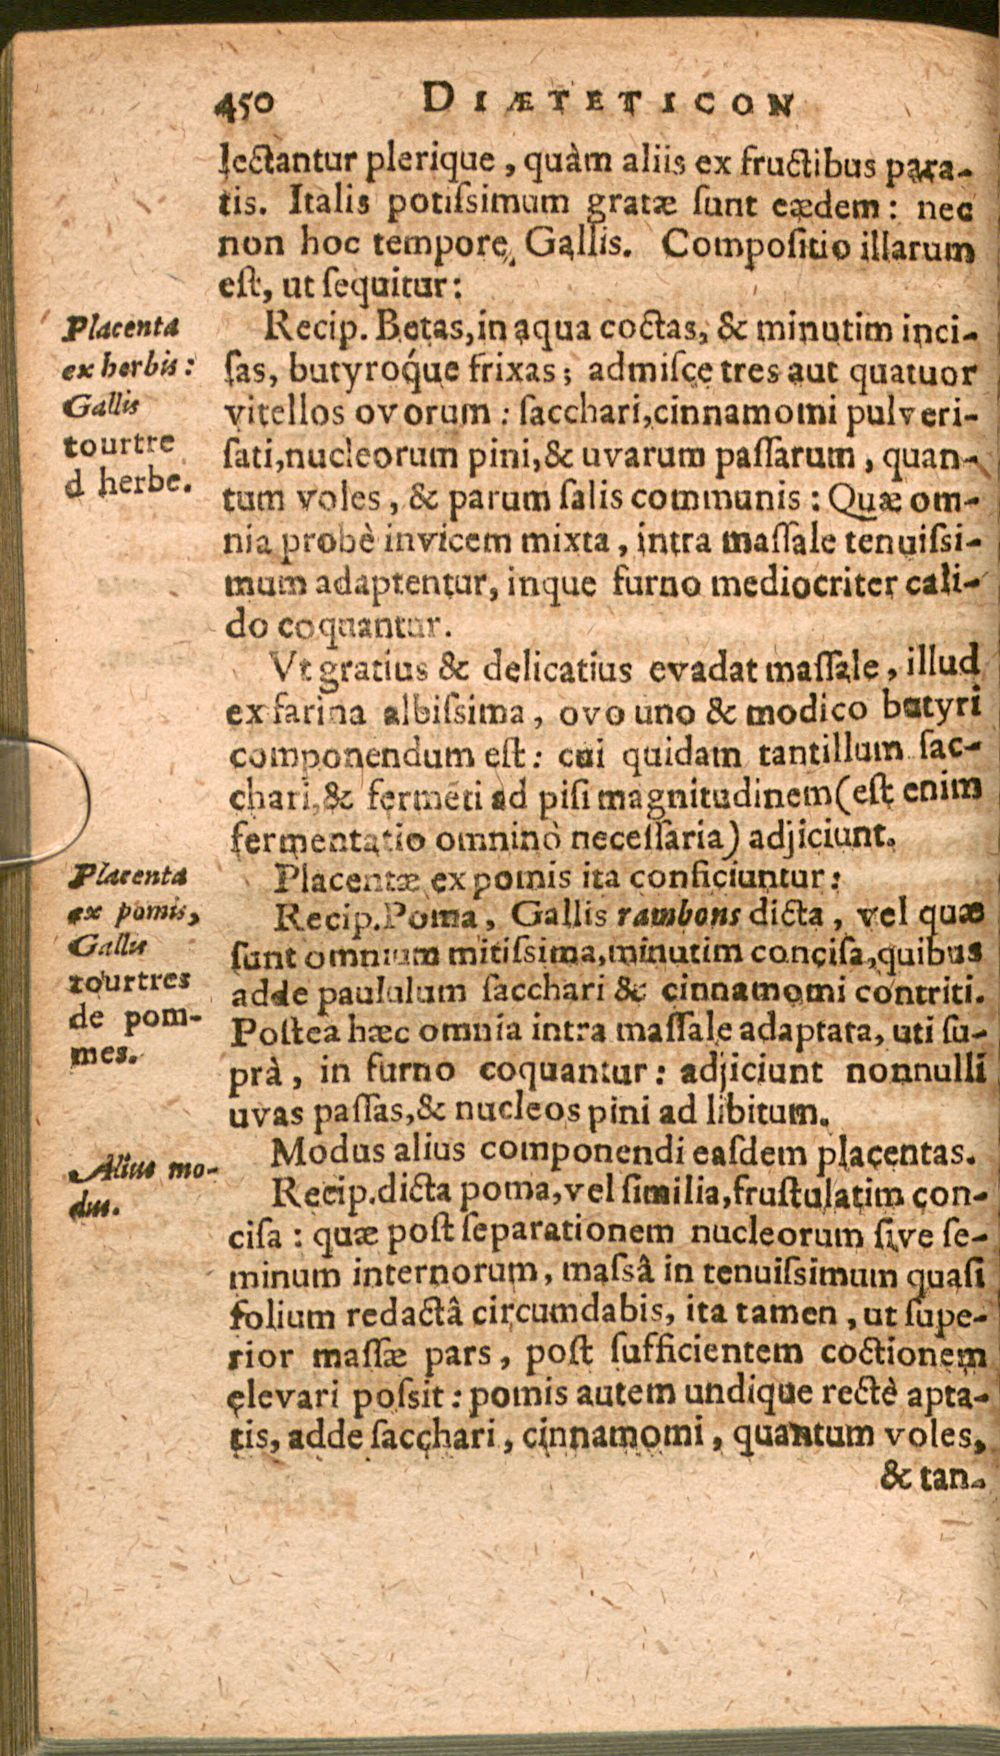 450 DIÆTETICON
lectantur plerique, quàm aliis ex fructibus para-
tis. Italis potiſsimum gratæ ſunt eædem: nec
non hoc tempore Gallis. Compoſitio illarum
eſt, ut ſequitur:
Placenta
ex herbis:
Gallis
tourtre
d herbe.
Recip. Betas, in aqua coctas, & minutim inci-
ſas, butyroq́ue frixas; admiſce tres aut quatuor
vitellos ovorum: ſacchari, cinnamomi pulveri-
ſati, nucleorum pini, & uvarum paſſarum, quan-
tum voles, & parum ſalis communis: Quæ om-
nia probè invicem mixta, intra maſſale tenuiſsi-
mum adaptentur, inque furno mediocriter cali-
do coquantur.
Vt gratius & delicatius evadat maſſale, illud
ex farina albiſsima, ovo uno & modico butyri
componendum eſt: cui quidam tantillum ſac-
chari, & fermẽti ad piſi magnitudinem (eſt enim
fermentatio omninò neceſſaria) adjiciunt.
Placenta
ex pomis,
Gallis
tourtres
de pom-
mes.
Placentæ ex pomis ita conficiuntur:
Recip. Poma, Gallis rambons dicta, vel quæ
ſunt omnium mitiſsima, minutim conciſa, quibus
adde paululum ſacchari & cinnamomi contriti.
Poſtea hæc omnia intra maſſale adaptata, uti ſu-
prà, in furno coquantur: adjiciunt nonnulli
uvas paſſas, & nucleos pini ad libitum.
Alius mo-
dus.
Modus alius componendi eaſdem placentas.
Recip. dicta poma, vel ſimilia, fruſtulatim con-
ciſa: quæ poſt ſeparationem nucleorum ſive ſe-
minum internorum, maſsâ in tenuiſsimum quaſi
folium redactâ circumdabis, ita tamen, ut ſupe-
rior maſſæ pars, poſt ſufficientem coctionem
elevari poſsit: pomis autem undique rectè apta-
tis, adde ſacchari, cinnamomi, quantum voles,
& tan-